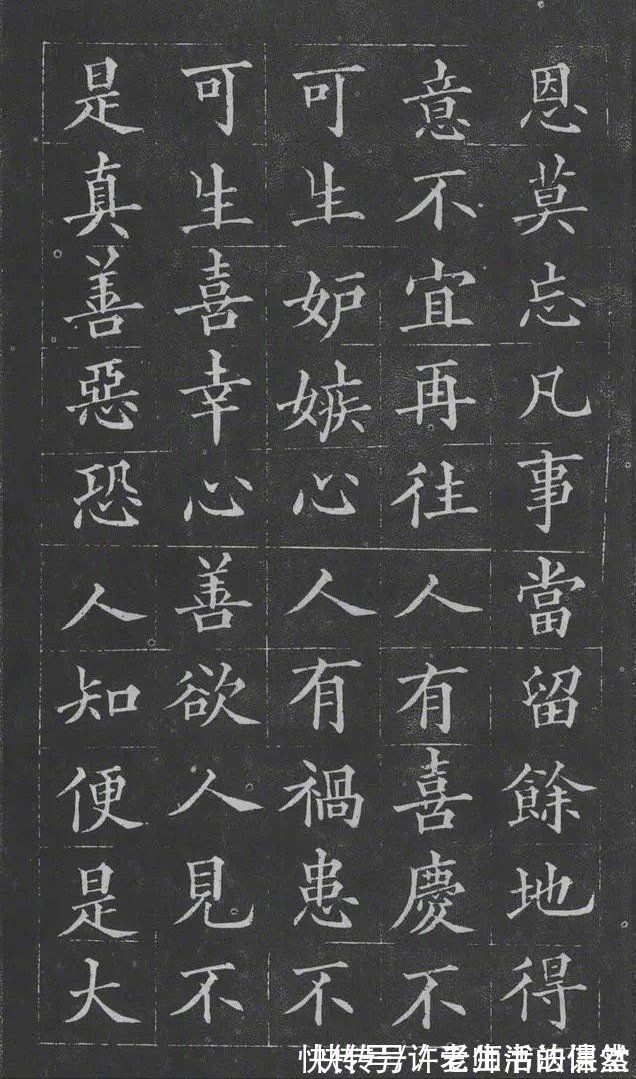 恩莫忘凡事當留餘地得
意不宜再往人有喜慶不
可生妒嫉心人有禍患不
可生喜幸心善欲人見不
是真善惡恐人知便是大